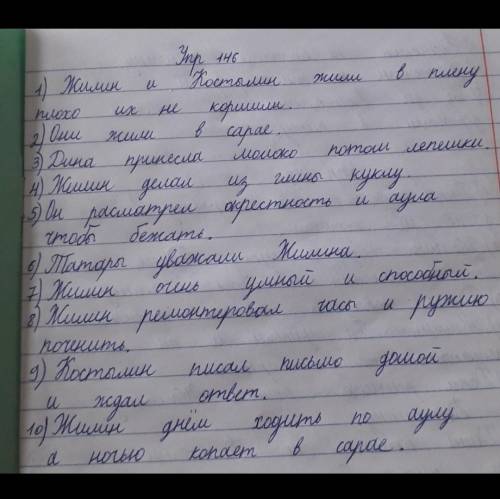 Упр 146
1) Жилин и Костылин жили в плену
плохо их не кормили.
2) Они жили в сарае.
3) Дина принесла молоко потом лепешки.
4) Жилин делал из глины куклу.
5) Он расматрел окрестность и аула
чтобы бежать.
6) Татары уважали Жилина.
7) Жилин очень умный и способный.
8) Жилин ремонтеровал часы и ружию
поченить.
9) Костылин писал письмо домой
и ждал ответ.
10) Жилин днём ходить по аулу
а ночью копает в сарае.